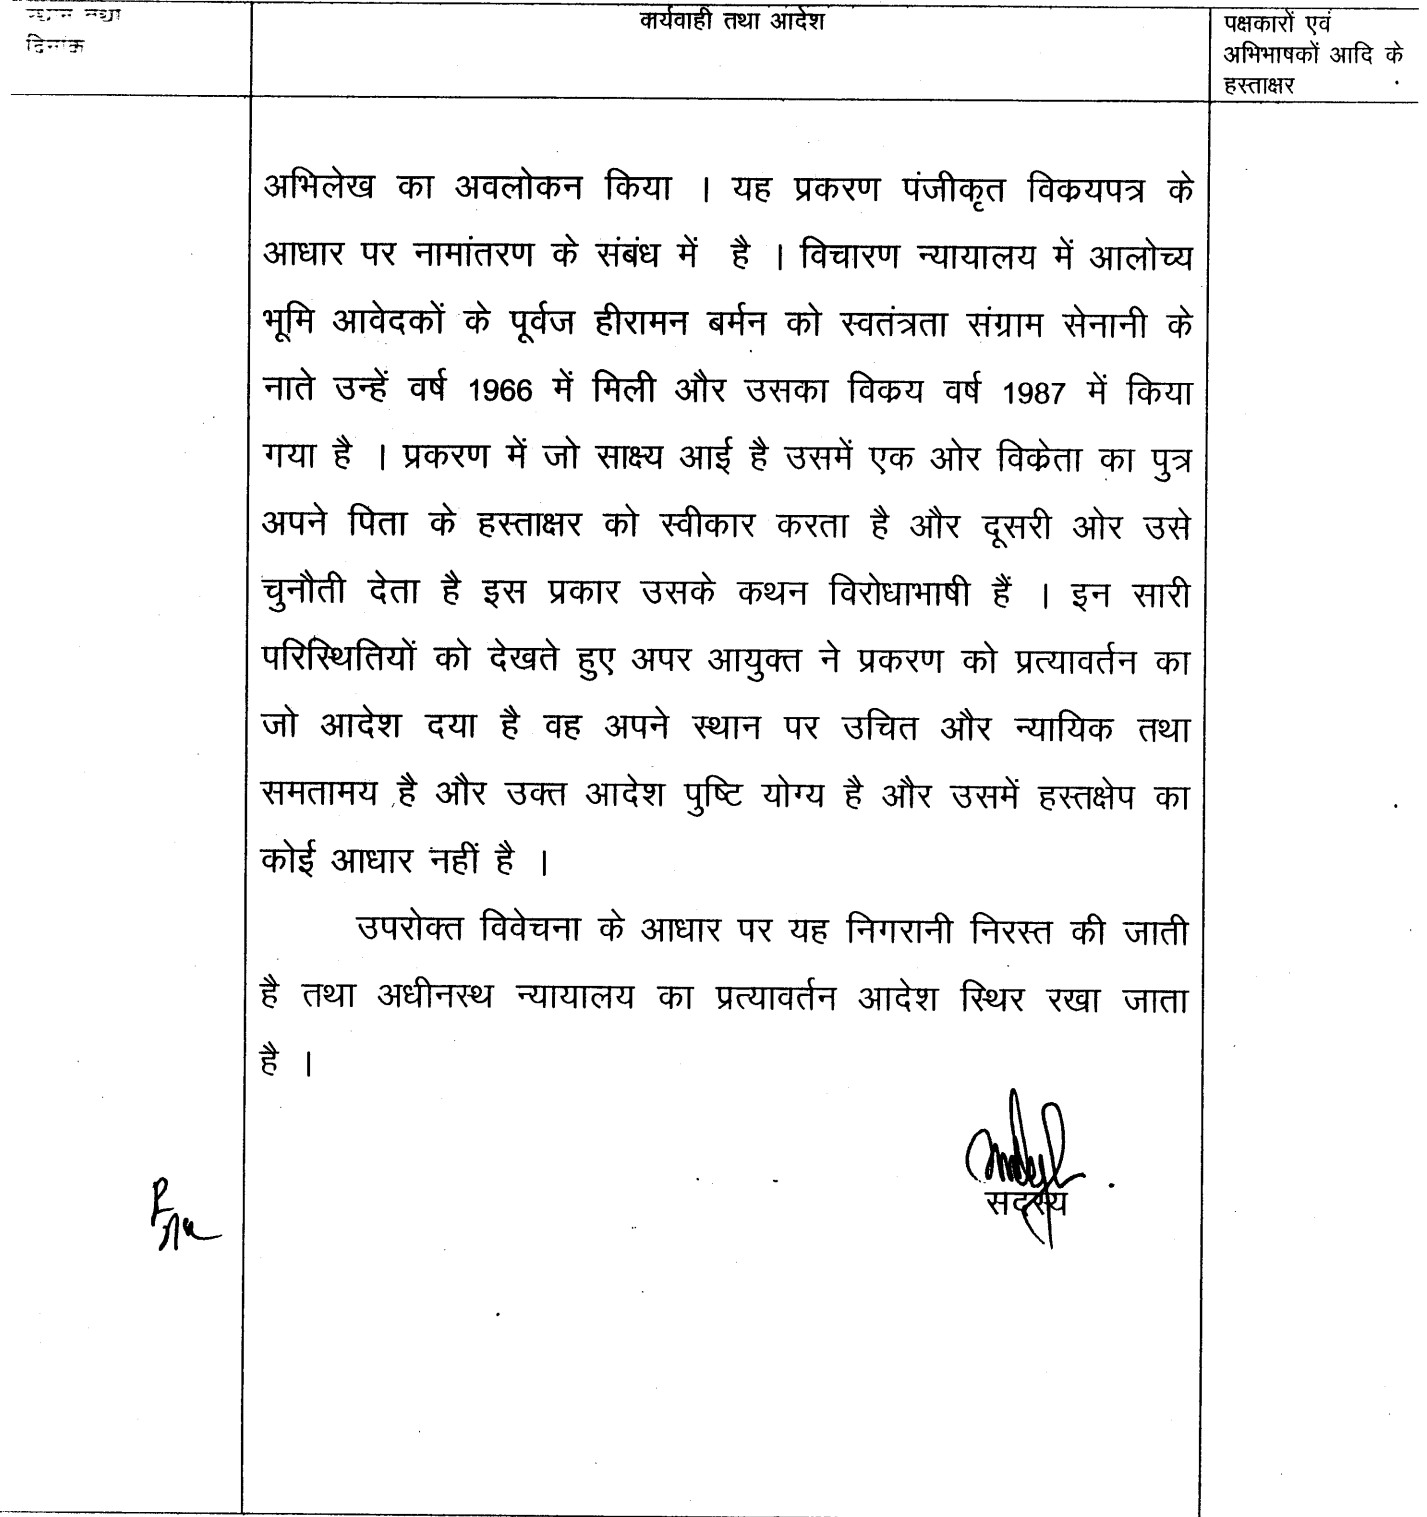 स्थान तथा
दिनांक
कार्यवाही तथा आदेश
पक्षकारों एवं
अभिभाषकों आदि के
हस्ताक्षर
अभिलेख का अवलोकन किया । यह प्रकरण पंजीकृत विकयपत्र के
आधार पर नामांतरण के संबंध में है । विचारण न्यायालय में आलोच्य
भूमि आवेदकों के पूर्वज हीरामन बर्मन को स्वतंत्रता संग्राम सेनानी के
नाते उन्हें वर्ष 1966 में मिली और उसका विकय वर्ष 1987 में किया
गया है । प्रकरण में जो साक्ष्य आई है उसमें एक ओर विकेता का पुत्र
अपने पिता के हस्ताक्षर को स्वीकार करता है और दूसरी ओर उसे
चुनौती देता है इस प्रकार उसके कथन विरोधाभाषी हैं । इन सारी
परिस्थितियों को देखते हुए अपर आयुक्त ने प्रकरण को प्रत्यावर्तन का
जो आदेश दया है वह अपने स्थान पर उचित और न्यायिक तथा
समतामय है और उक्त आदेश पुष्टि योग्य है और उसमें हस्तक्षेप का
कोई आधार नहीं है ।
उपरोक्त विवेचना के आधार पर यह निगरानी निरस्त की जाती
है तथा अधीनस्थ न्यायालय का प्रत्यावर्तन आदेश स्थिर रखा जाता
है ।
सदस्य